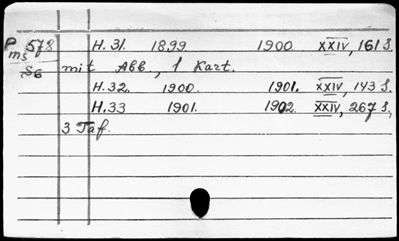 Pms 578 H. 31. 1899. 1900. XXIV, 161 S.
S6 mit Abb., 1 Kart.
H. 32. 1900. 1901. XXIV, 143 S.
H. 33 1901. 1902. XXIV, 267 S.,
3 Taf.